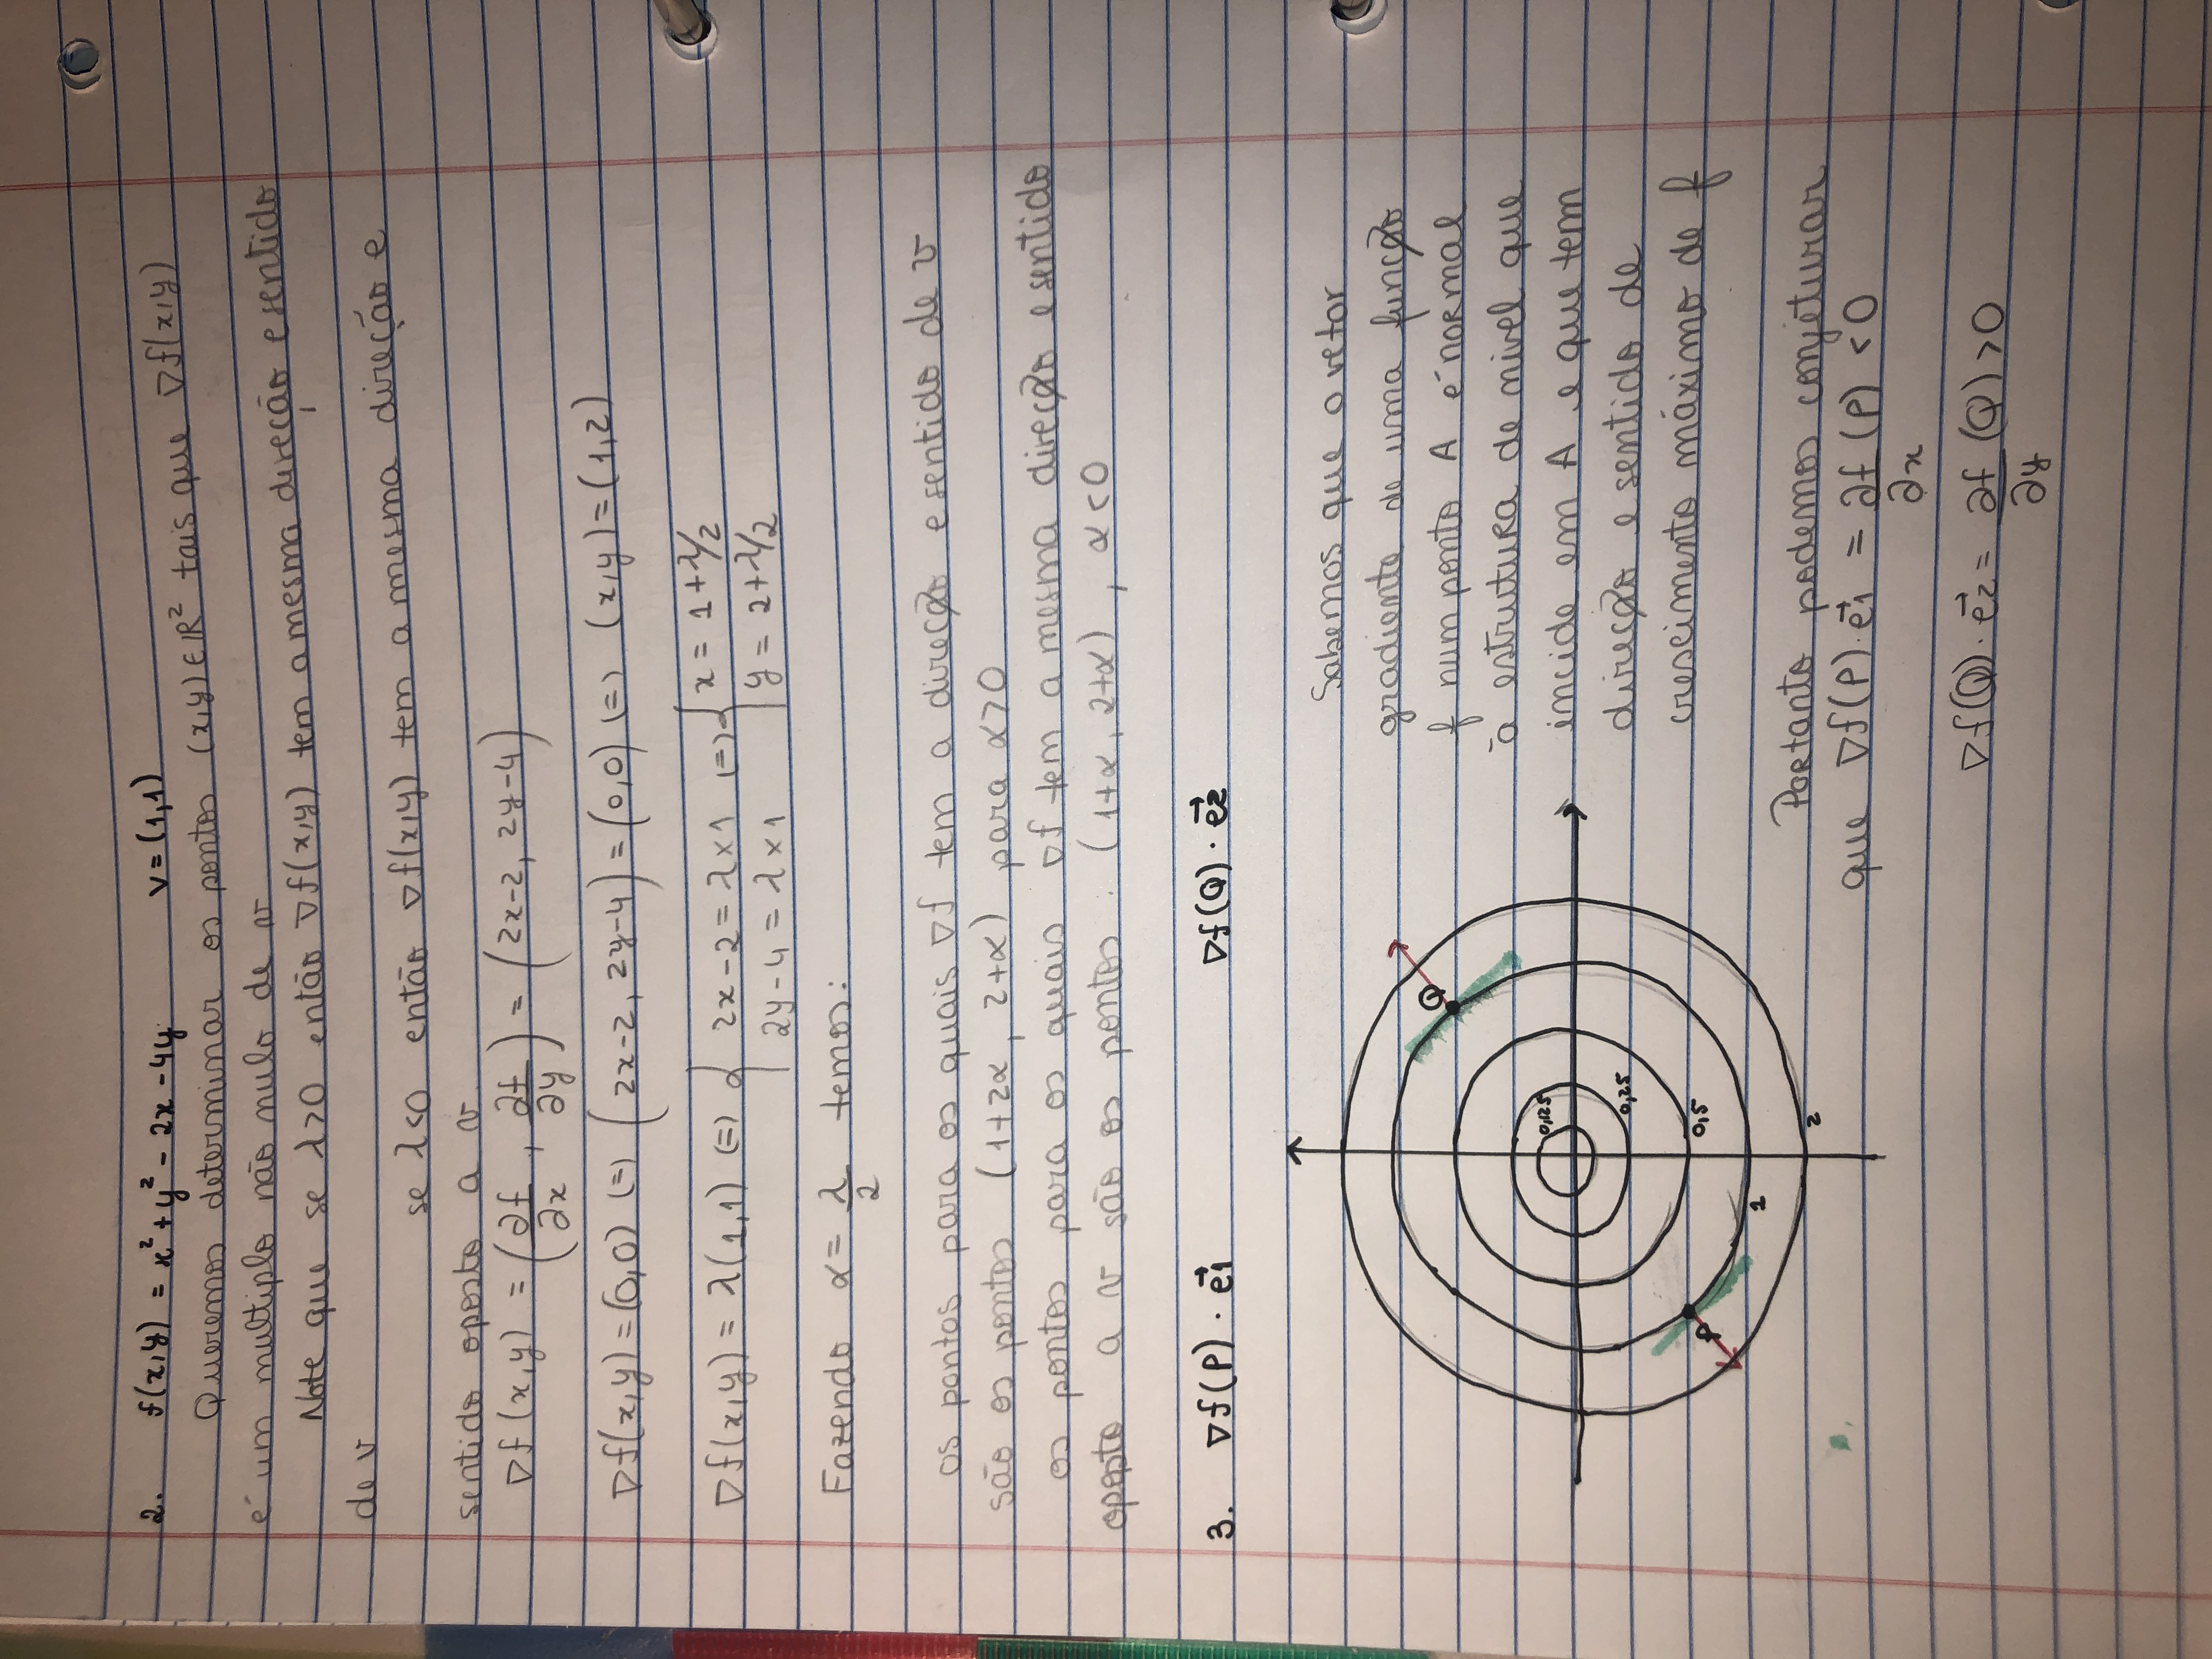 2. f(x,y) = x² + y² - 2x - 4y v = (1,1)
Queremos determinar os pontos (x,y) ∈ ℝ² tais que ∇f(x,y)
é um multiplo não nulo de v
Note que se λ>0 então ∇f(x,y) tem a mesma direção e sentido
de v
se λ<0 então ∇f(x,y) tem a mesma direção e
sentido oposto a v
∇f(x,y) = (∂f/∂x , ∂f/∂y) = (2x-2, 2y-4)
∇f(x,y) = (0,0) (=) (2x-2, 2y-4) = (0,0) (=) (x,y) = (1,2)
∇f(x,y) = λ(1,1) (=) { 2x-2 = λ×1 (=) { x = 1+λ/2
2y-4 = λ×1 y = 2+λ/2
Fazendo α = λ/2 temos:
os pontos para os quais ∇f tem a direção e sentido de v
são os pontos (1+2α, 2+α) para α>0
os pontos para os quais ∇f tem a mesma direção e sentido
oposto a v são os pontos : (1+α, 2+α) , α<0
3. ∇f(P) · e⃗1 ∇f(Q) · e⃗2
Q
0,125
0,25
P
0,5
1
2
Sabemos que o vetor
gradiente de uma função
f num ponto A é normal
à estrutura de nivel que
incide em A e que tem
direção e sentido de
crescimento máximo de f
Portanto podemos conjeturar
que ∇f(P) · e⃗1 = ∂f/∂x (P) < 0
∇f(Q) · e⃗2 = ∂f/∂y (Q) > 0